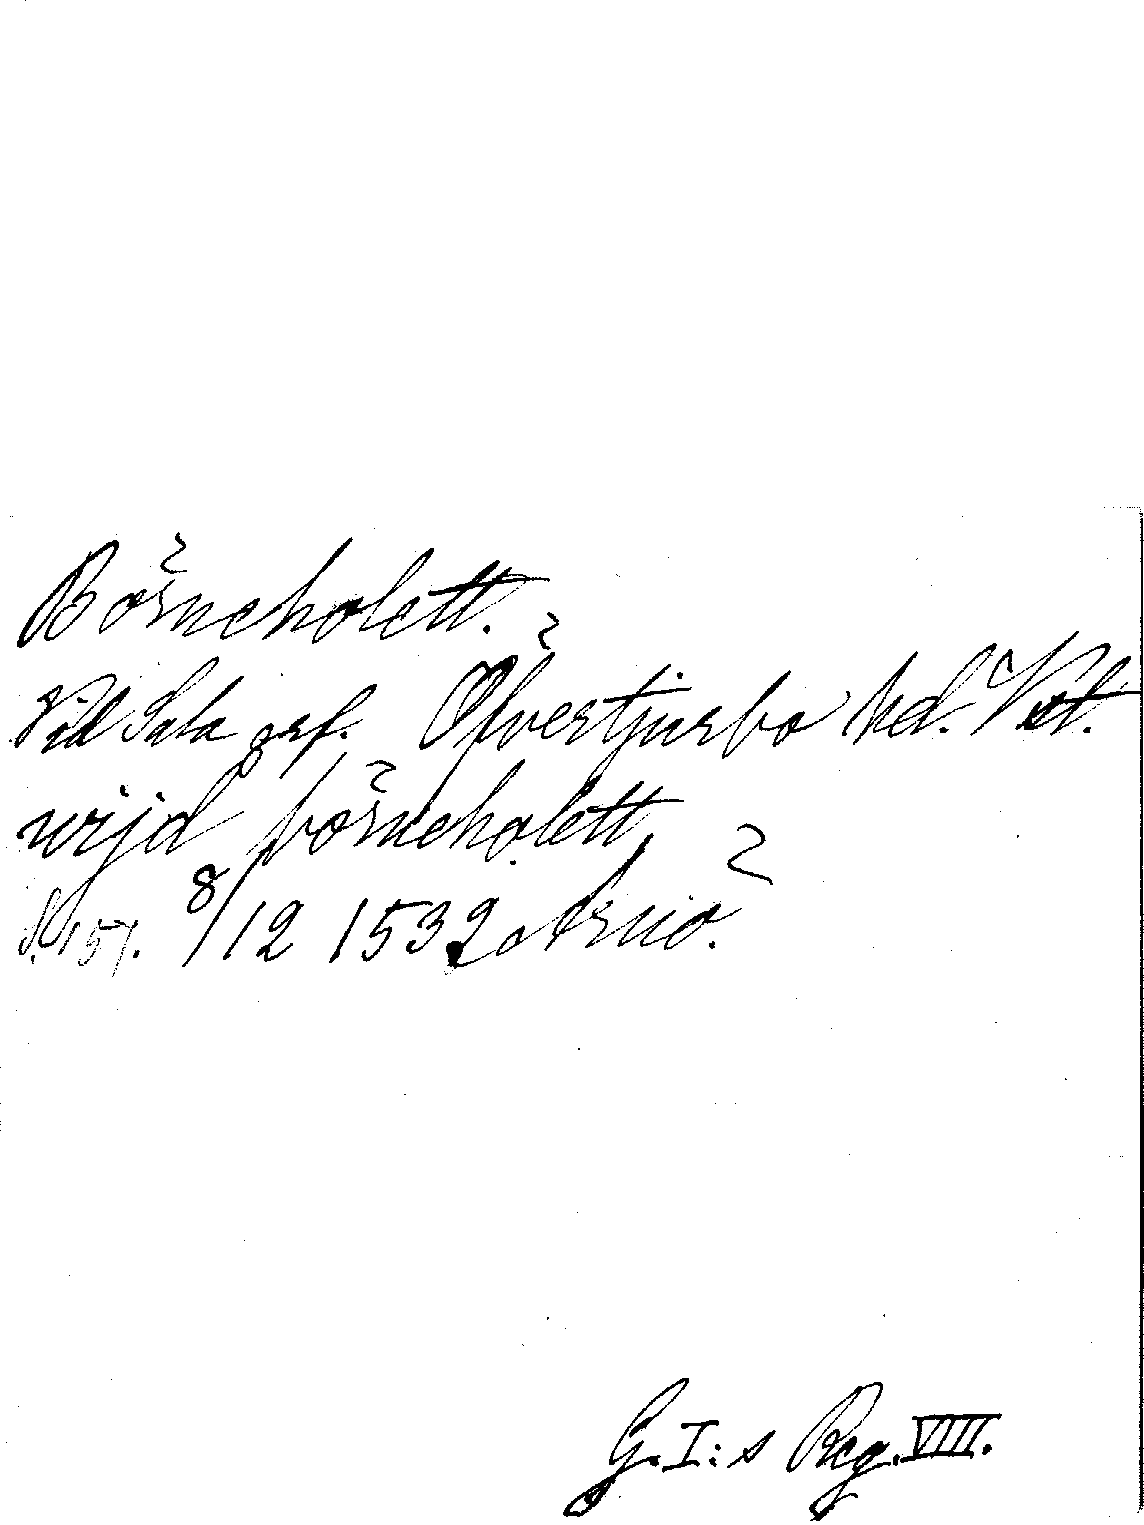 Börneholett.
Vid Sala grf. Öfvertjurbo hd. Vstl.
wijd börneholett
S. 151. 8/12 1532 Arnö.
G. I:s Reg. VIII.